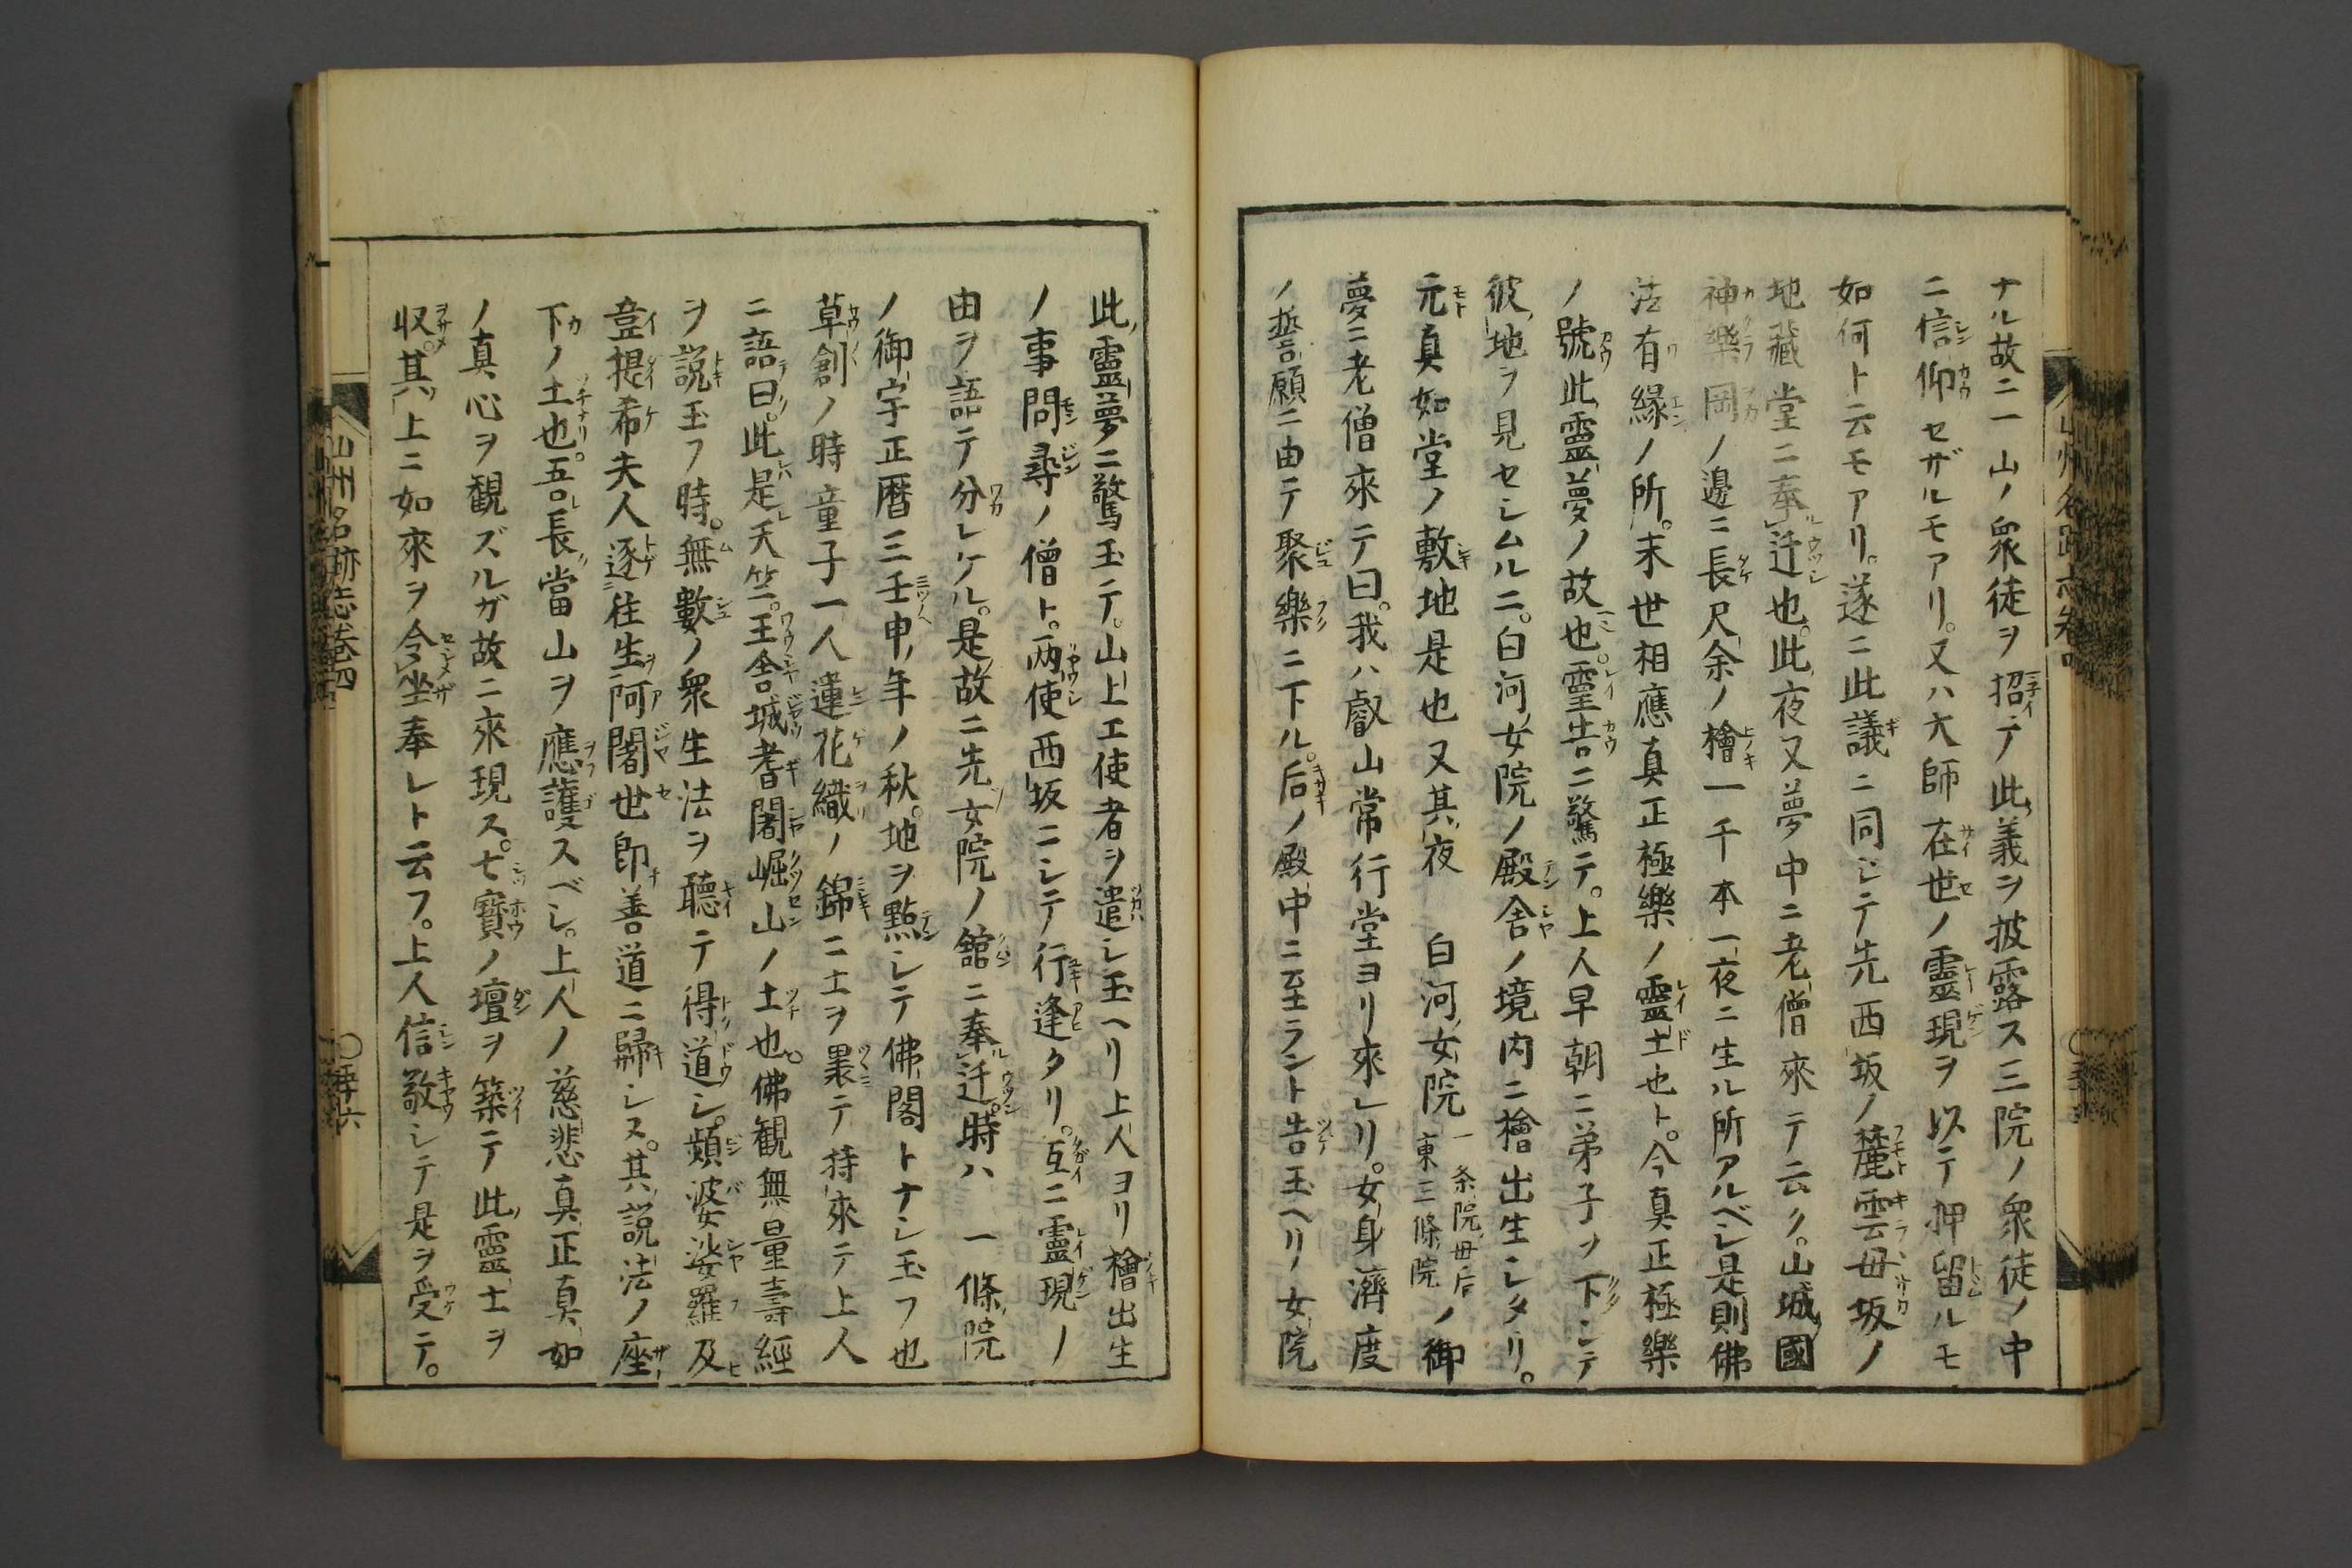 ナル故ニ一山ノ衆徒ヲ招テ此義ヲ披露ス三院ノ衆徒ノ中
ニ信仰セザルモアリ。又ハ大師在世ノ靈現ヲ以テ押留ルモ
如何ト云モアリ。遂ニ此議ニ同シテ先西坂ノ麓雲母坂ノ
地藏堂ニ奉迁也。此夜又夢中ニ老僧來テ云ク。山城國
神樂岡ノ邊ニ長尺余ノ檜一千本一夜ニ生ル所アルベシ是則佛
法有縁ノ所。末世相應真正極樂ノ靈土也ト。今真正極樂
ノ號此靈夢ノ故也。靈告ニ驚テ。上人早朝ニ弟子ヲ下シテ
彼地ヲ見セシムルニ。白河女院ノ殿舎ノ境内ニ檜出生シタリ。
元真如堂ノ敷地是也又其夜 白河女院 一条院母后 東三條院 ノ御
夢ニ老僧來テ曰。我ハ叡山常行堂ヨリ來レリ。女身濟度
ノ誓願ニ由テ聚樂ニ下ル。后ノ殿中ニ至ラント告玉ヘリ女院
山州名跡志巻四
此靈夢ニ驚玉テ。山上エ使者ヲ遣シ玉ヘリ上人ヨリ檜出生
ノ事問尋ノ僧ト。两使西坂ニシテ行逢タリ。互ニ靈現ノ
由ヲ語テ分レケル。是故ニ先女院ノ舘ニ奉迁。時ハ 一條院
ノ御宇正暦三壬申年ノ秋。地ヲ點シテ佛閣トナシ玉フ也
草創ノ時童子一人蓮花織ノ錦ニ土ヲ裹テ持來テ上人
ニ語曰。此是天竺。王舎城耆闍崛山ノ土也。佛観無量壽經
ヲ説玉フ時。無數ノ衆生法ヲ聽テ得道シ。頻婆娑羅及
韋提希夫人逐往生阿闍世即善道ニ歸シヌ。其説法ノ座
下ノ土也。吾長當山ヲ應護スベシ。上人ノ慈悲真正真如
ノ真心ヲ観ズルガ故ニ來現ス。七寳ノ壇ヲ築テ此靈土ヲ
収其上ニ如來ヲ令坐奉レト云フ。上人信敬シテ是ヲ受テ。
山州名跡志巻四